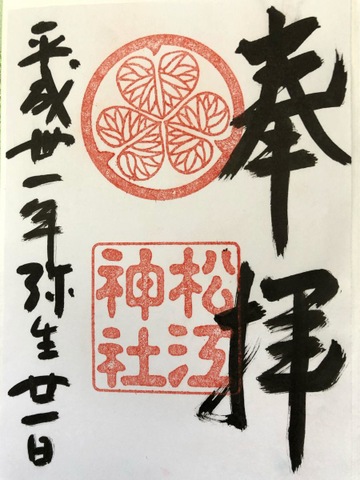 奉拝
松江
神社
平成卅一年弥生廿一日